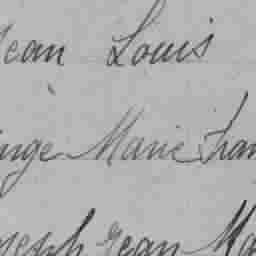 Jean Louis
ange Marie Fran
oseph Jean Ma